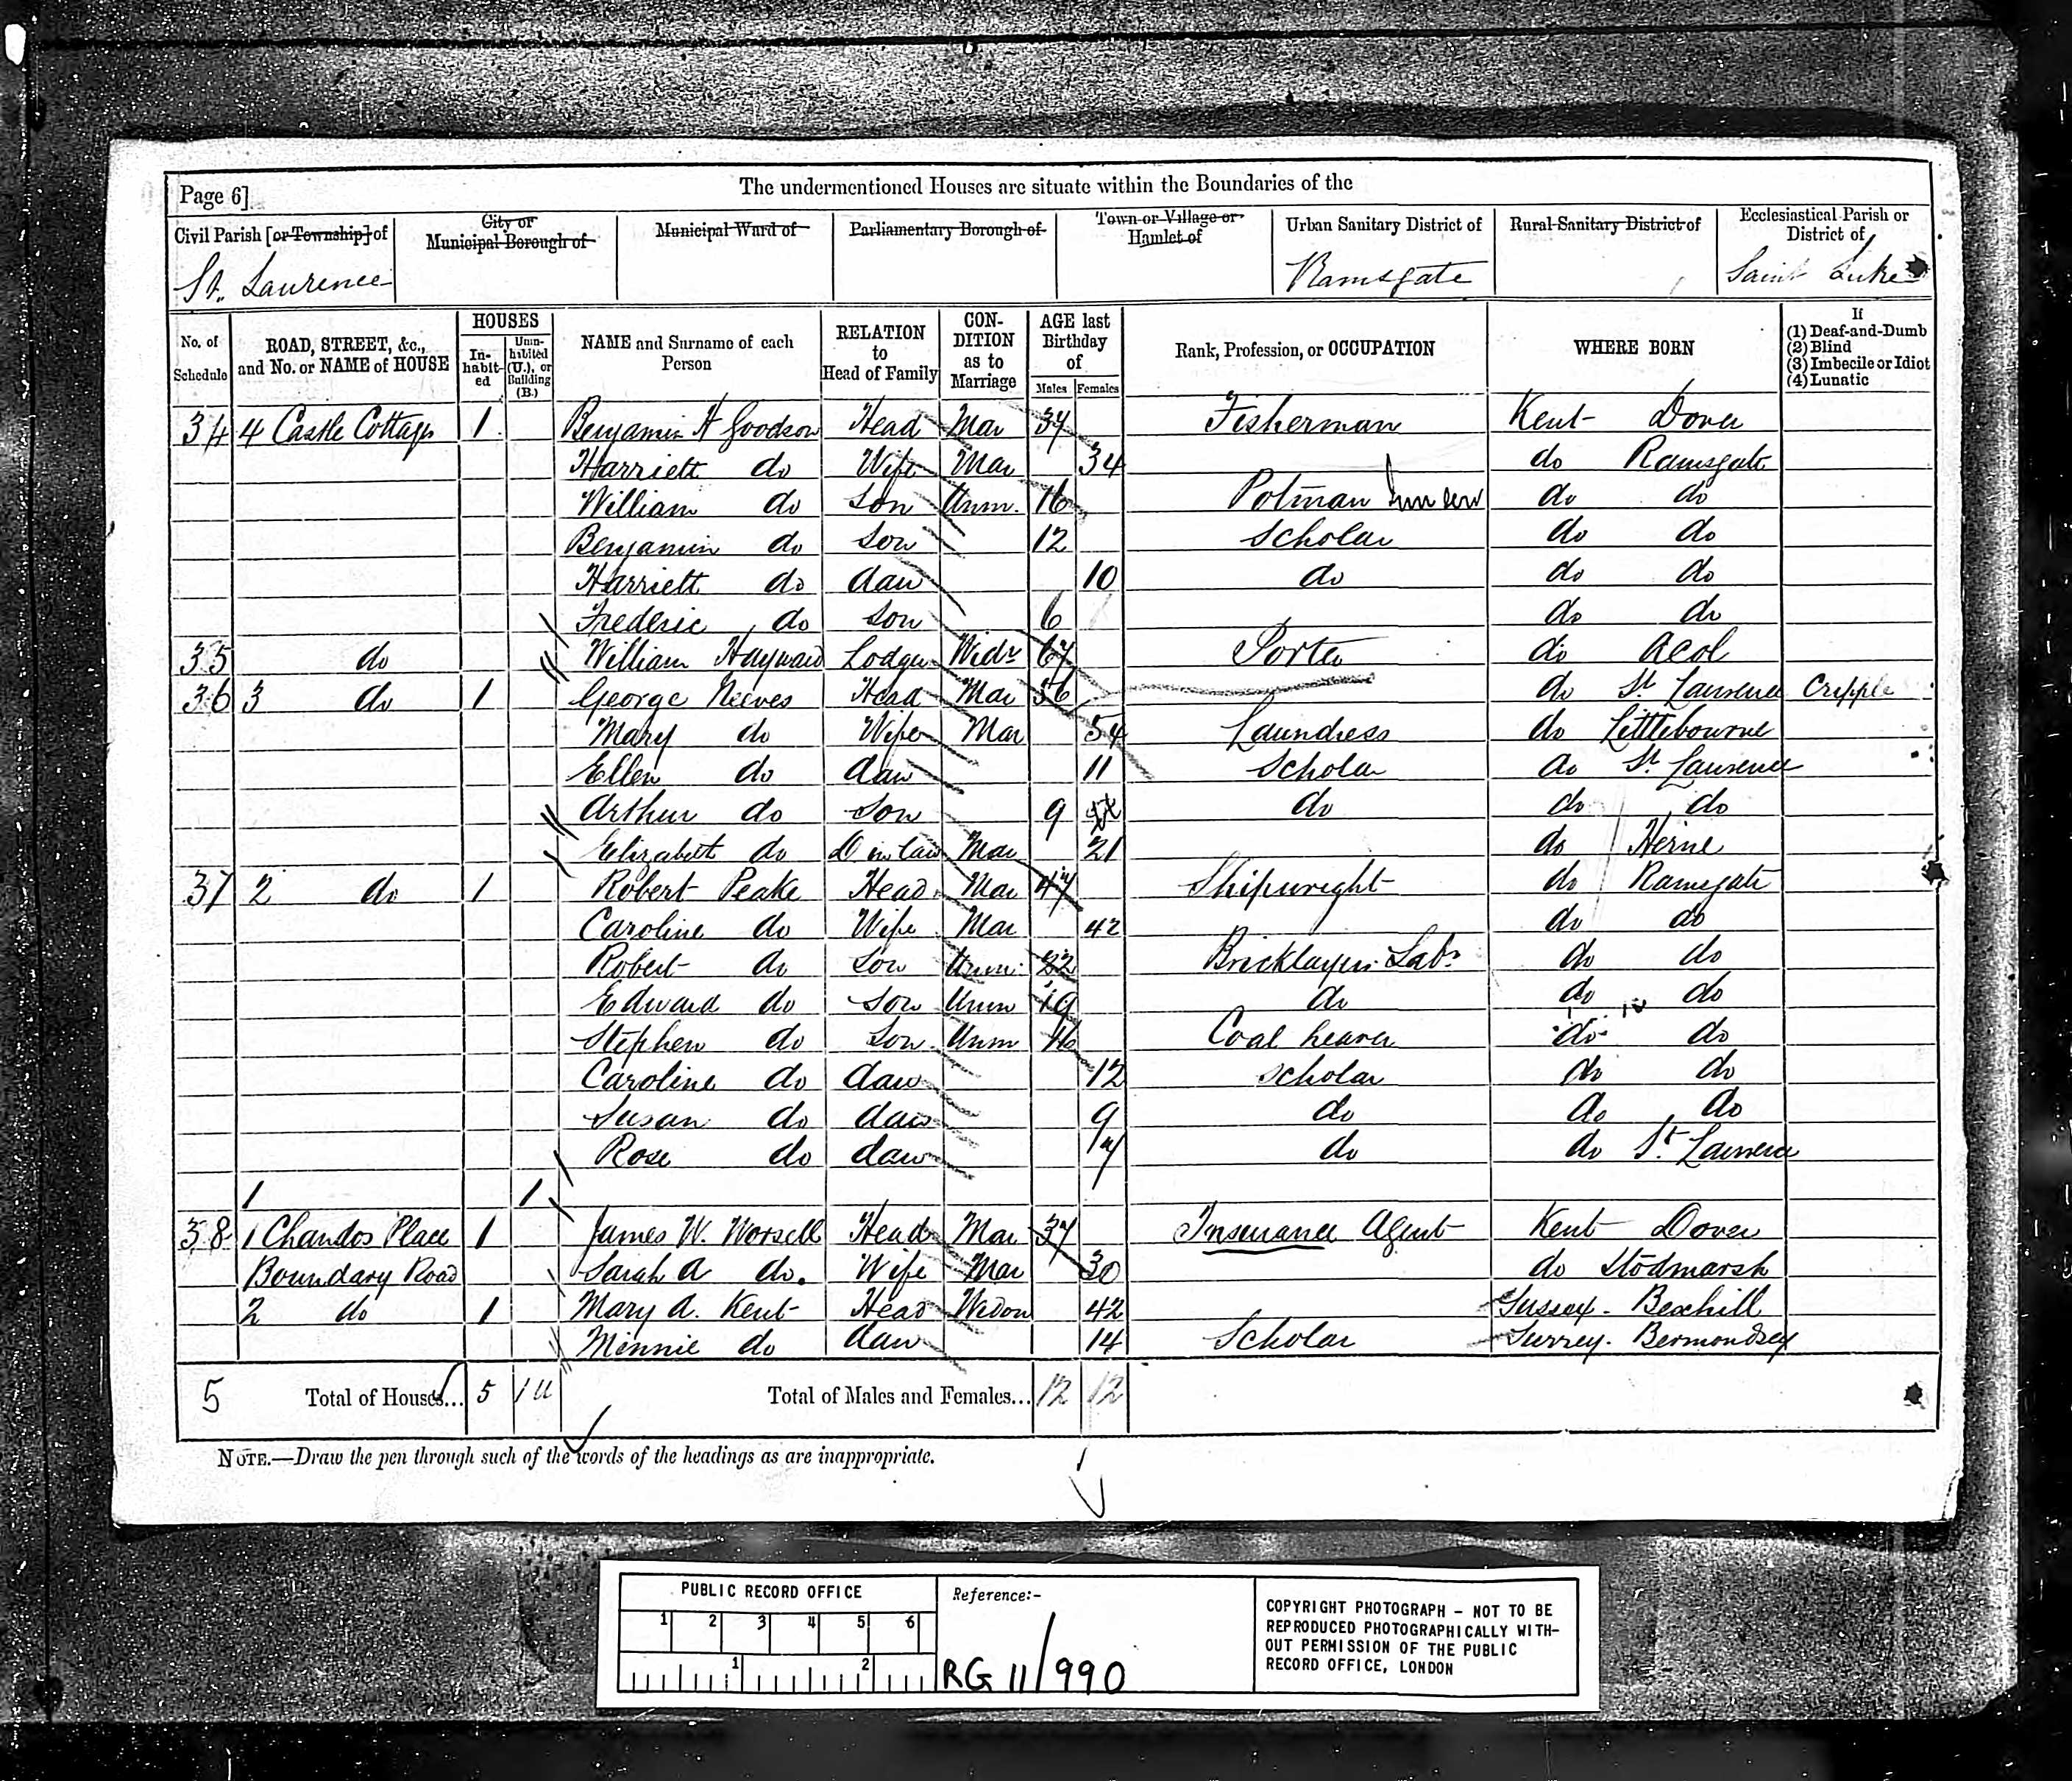 Page 6]
The undermentioned Houses are situate within the Boundaries of the
Civil Parish [or Township] of
City or Municipal Borough of
Municipal Ward of
Parliamentary Borough of
Town or Village or Hamlet of
Urban Sanitary District of
Rural Sanitary District of
Ecclesiastical Parish or District of
St. Laurence Ramsgate Saint Luke
No. of Schedule
ROAD, STREET, &c., and No. or NAME of HOUSE
HOUSES
In-habit-ed
Unin-habited (U.), or Building (B.)
NAME and Surname of each Person
RELATION to Head of Family
CON-DITION as to Marriage
AGE last Birthday of
Males Females
Rank, Profession, or OCCUPATION
WHERE BORN
If
(1) Deaf-and-Dumb
(2) Blind
(3) Imbecile or Idiot
(4) Lunatic
34 4 Castle Cottages 1 Benjamin H Goodson Head Mar 37 Fisherman Kent Dover
Harriett do Wife Mar 34 do Ramsgate
William do Son Unm. 16 Potman do do
Benjamin do Son 12 Scholar do do
Harriett do daur 10 do do do
Frederic do Son 6 do do
35 do William Hayward Lodger Widr 67 Porter do Acol
36 3 do 1 George Neeves Head Mar 56 do St Laurence Cripple
Mary do Wife Mar 54 Laundress do Littlebourne
Ellen do daur 11 Scholar do St Laurence
Arthur do Son 9 do do do
Elizabeth do D in law Mar 21 do Herne
37 2 do 1 Robert Peake Head Mar 47 Shipwright do Ramsgate
Caroline do Wife Mar 42 do do
Robert do Son Unm 22 Bricklayers Labr do do
Edward do Son Unm 19 do do do
Stephen do Son Unm 16 Coal heaver do do
Caroline do daur 12 Scholar do do
Susan do daur 9 do do do
Rose do daur 7 do do St Laurence
1 1
38 1 Chandos Place 1 James W. Worsell Head Mar 37 Insurance Agent Kent Dover
Boundary Road Sarah A do. Wife Mar 30 do Stodmarsh
2 do 1 Mary A. Kent Head Widow 42 Sussex. Bexhill
Minnie do daur 14 Scholar Surrey. Bermondsey
5 Total of Houses... 5 1 U Total of Males and Females... 12 12
NOTE.—Draw the pen through such of the words of the headings as are inappropriate.
PUBLIC RECORD OFFICE
1 2 3 4 5 6
1 2
Reference:-
RG 11/990
COPYRIGHT PHOTOGRAPH - NOT TO BE
REPRODUCED PHOTOGRAPHICALLY WITH-
OUT PERMISSION OF THE PUBLIC
RECORD OFFICE, LONDON